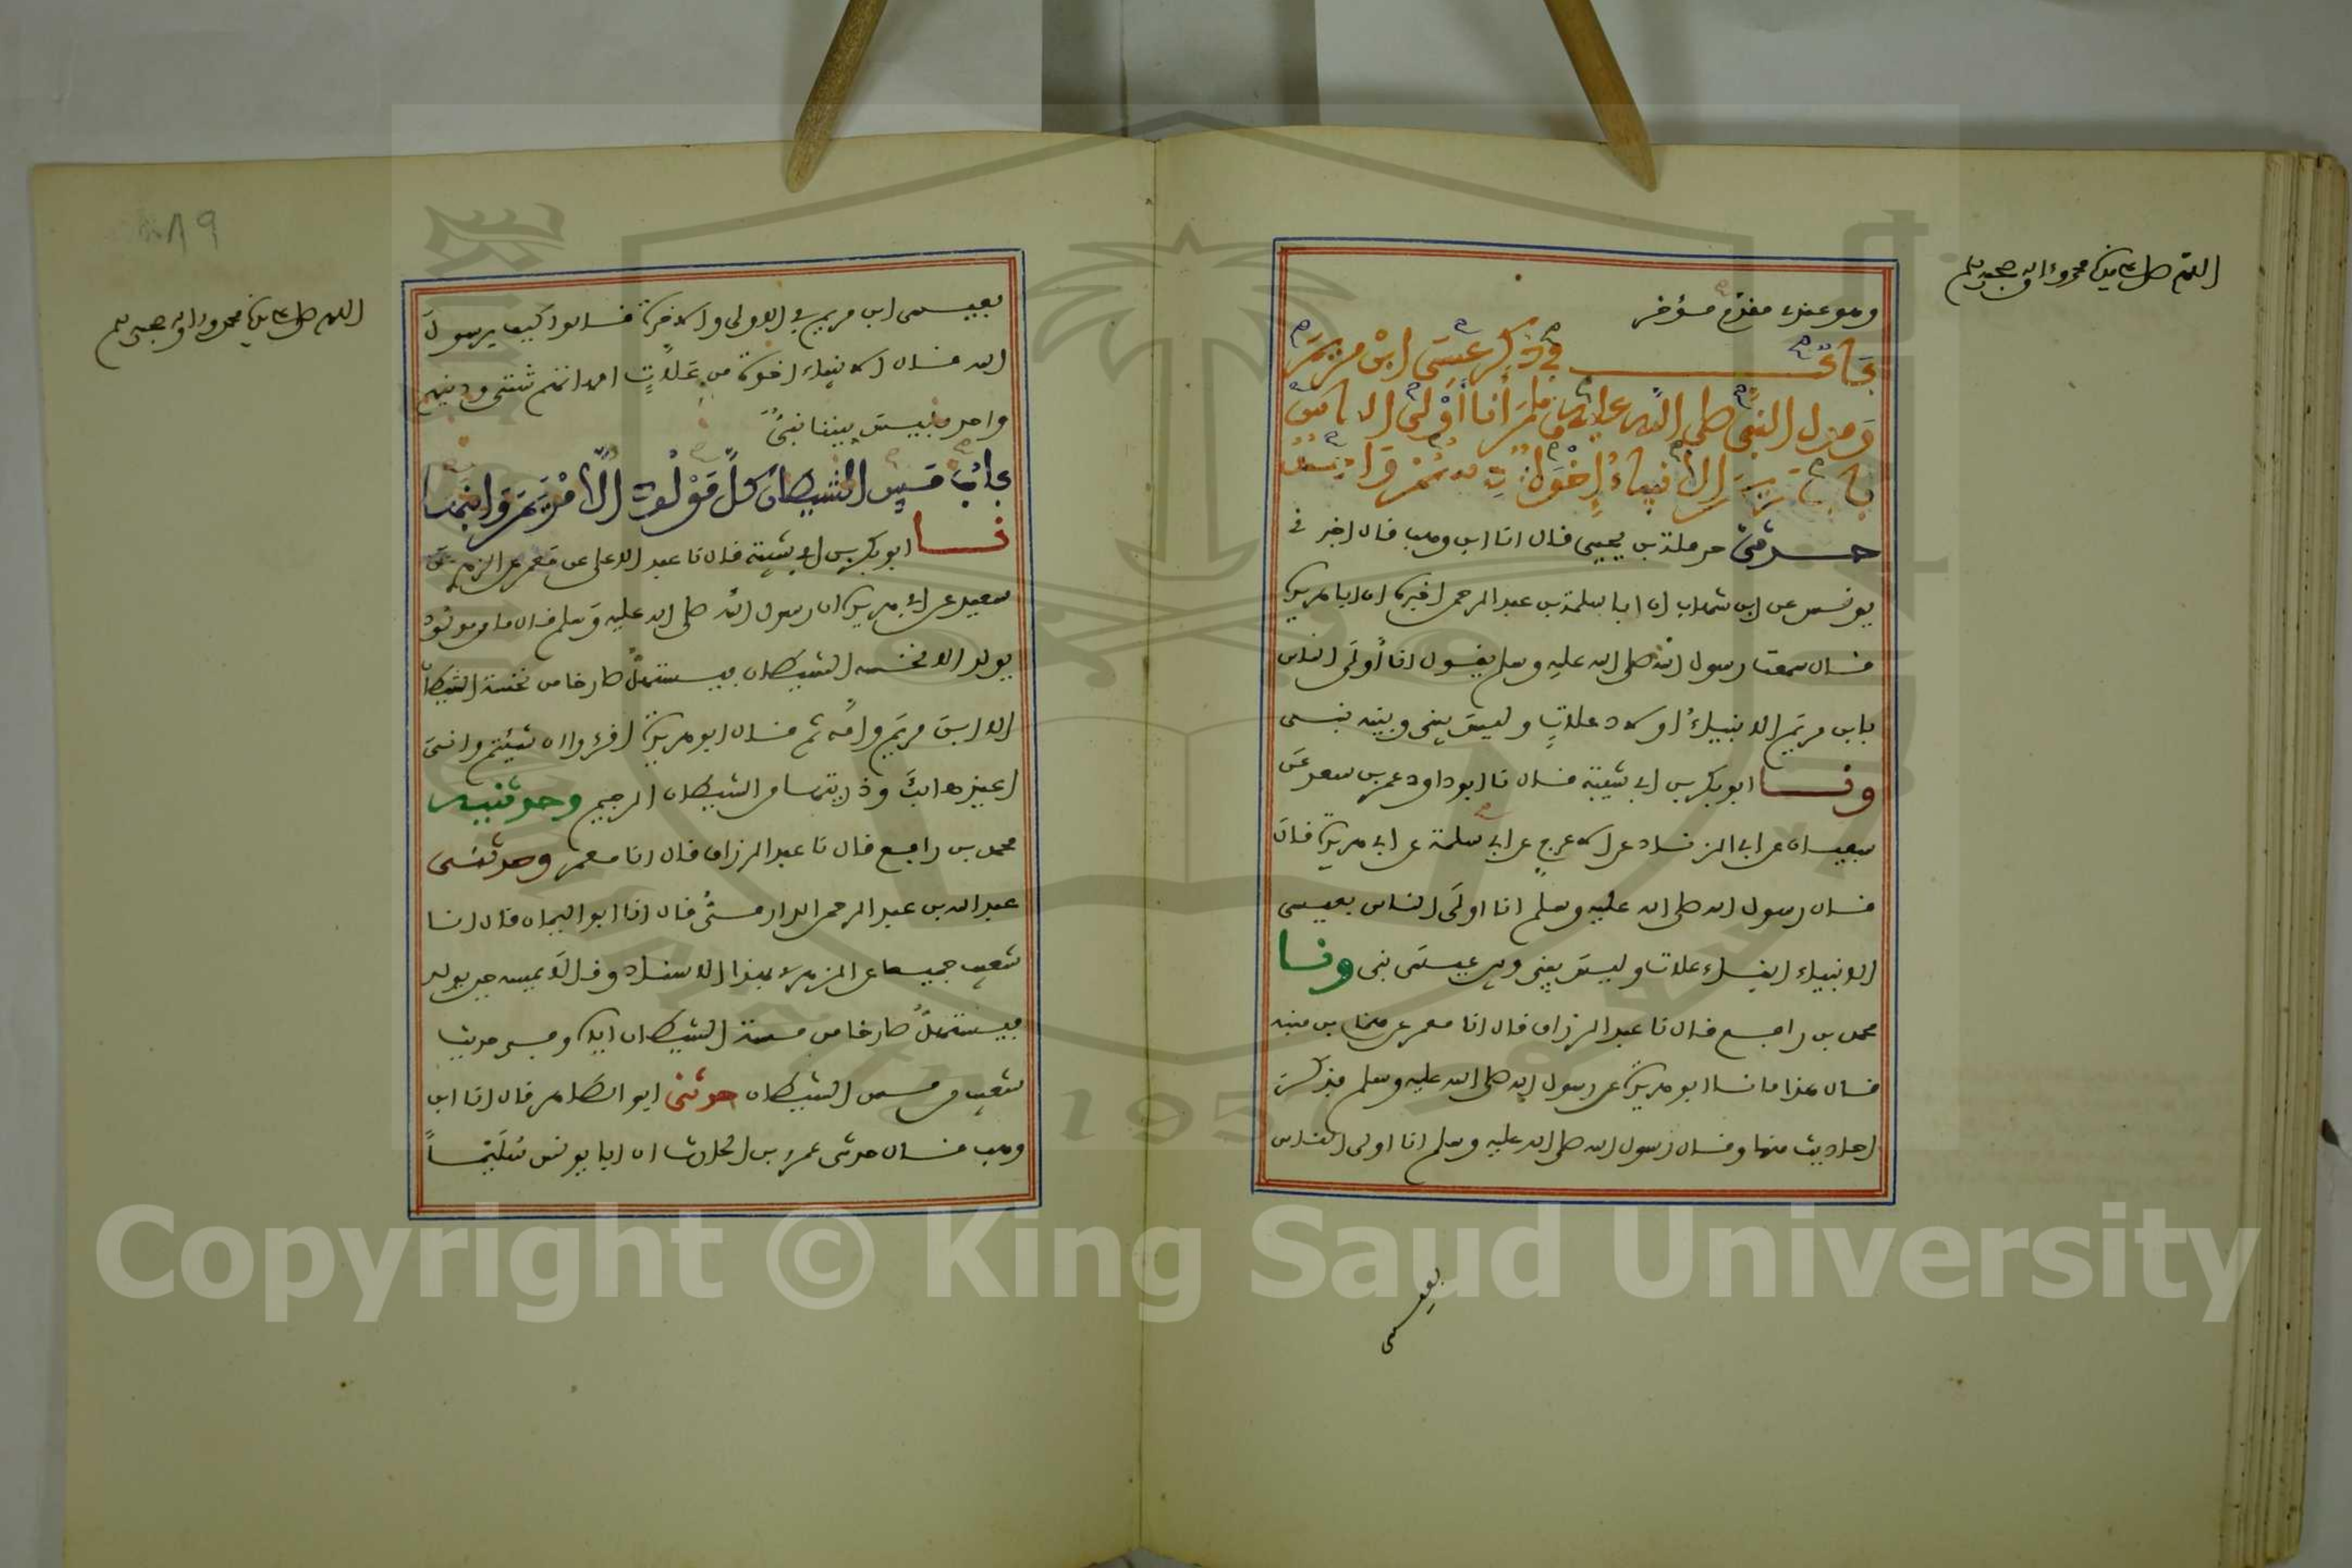 اللهم صل على سيدنا محمد وءاله وصحبه وسلم
وهو عنده مقدم مؤخر
باب في ذكر عيسى ابن مريم
وقول النبي صلى الله عليه وسلم أنا أولى الناس
الأنبياء إخوة
حدثني حرملة بن يحيى قال انا ابن وهب قال اخبرني
يونس عن ابن شهاب ان ابا سلمة بن عبد الرحمن اخبره ان ابا هريرة
قال سمعت رسول الله صلى الله عليه وسلم يقول انا أولى الناس
بابن مريم الانبياء اولاد علات وليس بيني وبينه نبي
ونا ابو بكر بن ابي شيبة قال نا ابو داود عمر بن سعد عن
سفيان عن ابي الزناد عن الاعرج عن ابي سلمة عن ابي هريرة قال
قال رسول الله صلى الله عليه وسلم انا اولى الناس بعيسى
الانبياء ابناء علات وليس بيني وبين عيسى نبي ونا
محمد بن رافع قال نا عبد الرزاق قال انا معمر عن همام بن منبه
قال هذا ما نا ابو هريرة عن رسول الله صلى الله عليه وسلم فذكر
احاديث منها وقال رسول الله صلى الله عليه وسلم انا اولى الناس
بعيسى
٨٩
اللهم صل على سيدنا محمد وءاله وصحبه وسلم
بعيسى ابن مريم في الاولى والاخرة قالوا كيف يرسول
الله قال الانبياء اخوة من علات امهاتهم شتى ودينهم
واحد فليس بيننا نبي
باب مس الشيطان كل مولود إلا مريم وابنها
نا ابو بكر بن ابي شيبة قال نا عبد الاعلى عن معمر عن الزهري عن
سعيد عن ابي هريرة ان رسول الله صلى الله عليه وسلم قال ما من مولود
يولد الا نخسه الشيطان فيستهل صارخا من نخسة الشيطان
الا ابن مريم وامه ثم قال ابو هريرة اقرءوا ان شيتم واني
اعيذها بك وذريتها من الشيطان الرجيم وحدثنيه
محمد بن رافع قال نا عبد الرزاق قال انا معمر وحدثني
عبد الله بن عبد الرحمن الدارمي قال انا ابو اليمان قال انا
شعيب جميعا عن الزهري بهذا الاسناد وقالا يمسه حين يولد
فيستهل صارخا من مسة الشيطان اياه وفي حديث
شعيب من مس الشيطان حدثني ابو الطاهر قال انا ابن
وهب قال حدثني عمرو بن الحارث ان ابا يونس سليما
Copyright © King Saud University
1957